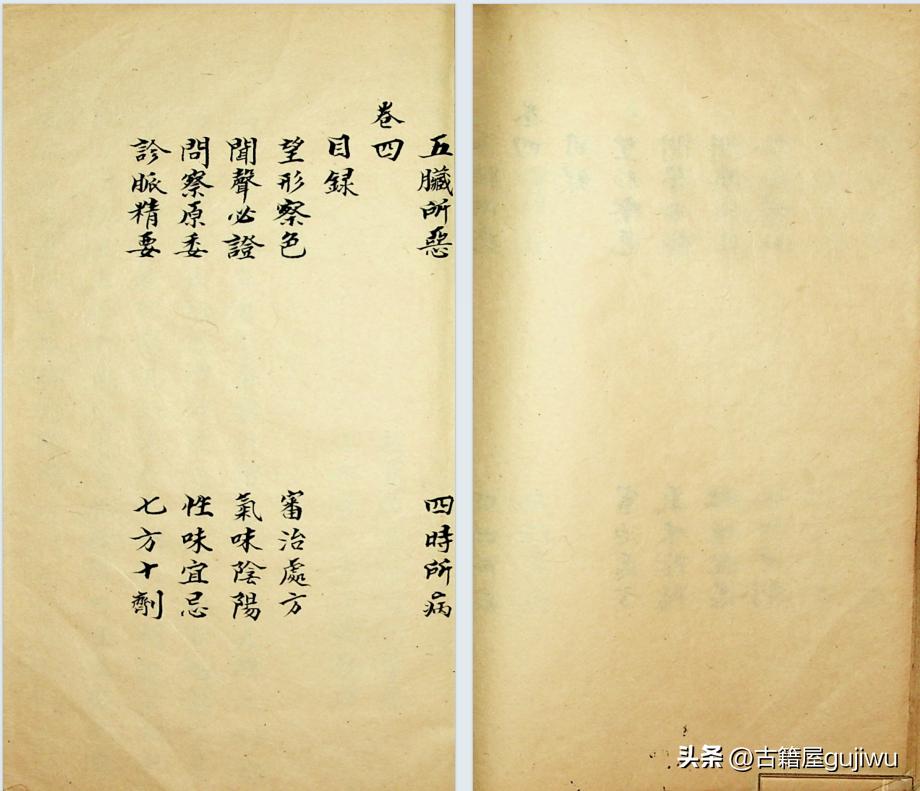 五臟所惡 四時所病
卷四
目録
望形察色 審治處方
聞聲必證 氣味陰陽
問察原委 性味宜忌
診脈精要 七方十劑
头条 @古籍屋gujiwu